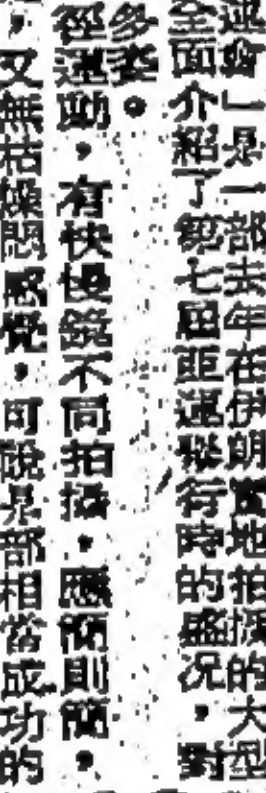 運會」是一部去年在伊朗實地拍攝的大型
全面介紹了第七屆亞運舉行時的盛况,對
多姿。
徑運動,有快慢鏡不同拍攝,應簡則簡。
,又無枯燥悶感覺,可說是部相當成功的